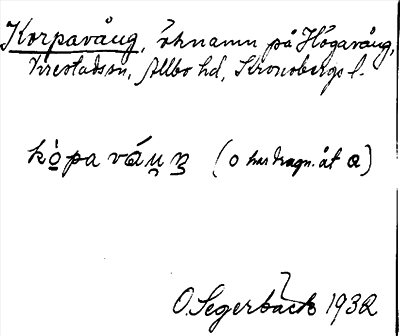 Korpavång, öknamn på Högavång,
Virestadssn, Allbo hd, Kronobergs l.
kò̱pa vá (o har dragn. åt a)
O. Segerbäck 1932